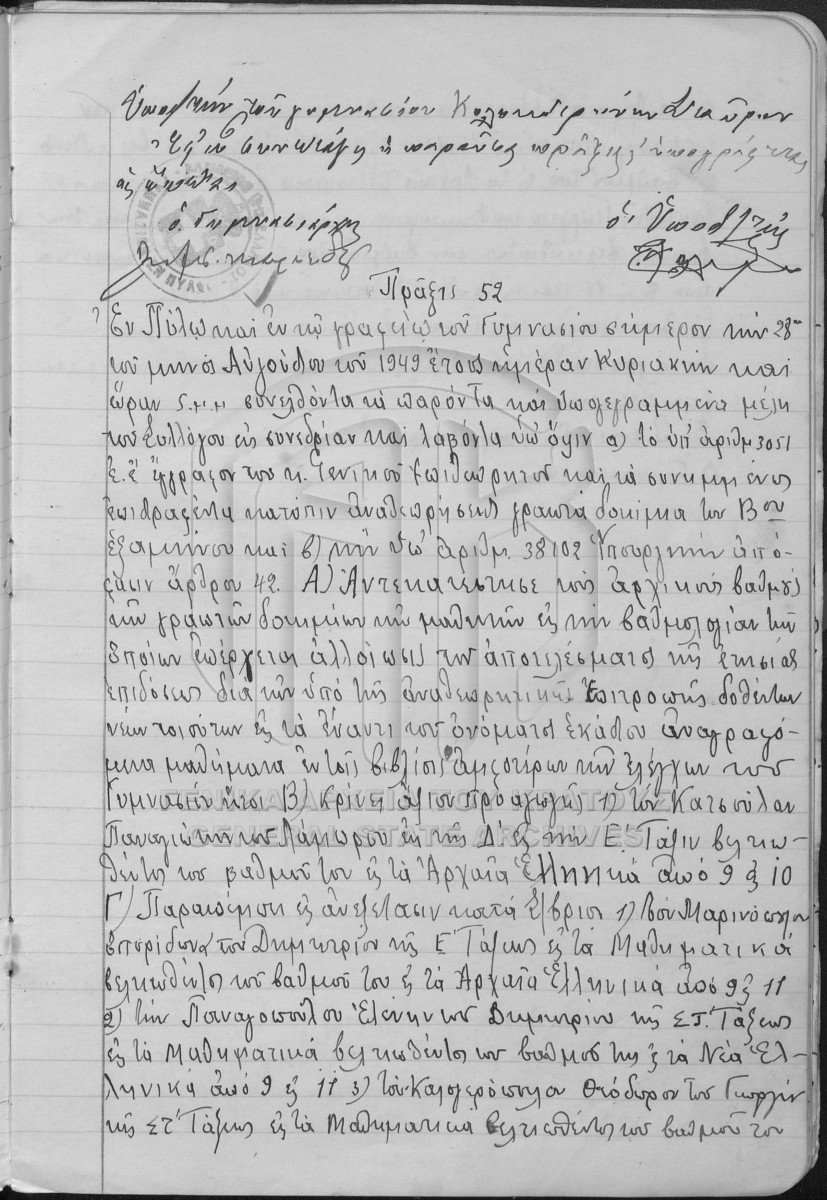 ὁ Γυμνασιάρχης
Πρᾶξις 52
Ἐν Πύλῳ καὶ ἐν τῷ γραφείῳ τοῦ Γυμνασίου σήμερον τὴν 28ην
τοῦ μηνὸς Αὐγούστου τοῦ 1949 ἔτους ἡμέραν Κυριακὴν καὶ
ὥραν 5 μ.μ συνελθόντα τὰ παρόντα καὶ ὑπογεγραμμένα μέλη
τοῦ Συλλόγου εἰς συνεδρίαν καὶ λαβόντα ὑπ' ὄψιν α) τὸ ὑπ' ἀριθμ 3051
ἔ.ἔ ἔγγραφον του κ. Γενικοῦ Ἐπιθεωρητοῦ καὶ τὰ συνημμένως
ἐπιστραφέντα κατόπιν ἀναθεωρήσεως γραπτὰ δοκίμια του Βου
ἑξαμήνου καὶ β) τὴν ὑπ' ἀριθμ. 38102 Ὑπουργικὴν ἀπό-
φασιν ἄρθρον 42. Α) Ἀντεκατέστησε τοὺς ἀρχικοὺς βαθμοὺς
τῶν γραπτῶν δοκιμίων τῶν μαθητῶν εἰς τὴν βαθμολογίαν τῶν
ὁποίων ἐπέρχεται ἀλλοίωσις τοῦ ἀποτελέσματος τῆς ἐτησίας
ἐπιδόσεως διὰ τῶν ὑπὸ τῆς ἀναθεωρητικῆς Ἐπιτροπῆς δοθέντων
νέων τοιούτων εἰς τὰ ἔναντι τοῦ ὀνόματος ἑκάστου ἀναγραφό-
μενα μαθήματα ἐν τοῖς βιβλίοις ἀμφοτέρων τῶν ἐλέγχων τοῦ
Γυμνασίου ἤτοι Β) Κρίνει ἄξιον προαγωγῆς 1) τὸν Κατσούλαν
Παναγιώτην του Λάμπρου ἐκ τῆς Δ' εἰς τὴν Ε' Τάξιν βελτιω-
θέντος τοῦ βαθμοῦ του εἰς τὰ Ἀρχαῖα Ἑλληνικά ἀπό 9 εἰς 10
Γ) Παραπέμπει εἰς ἀνεξέτασιν κατὰ 1) τὸν Μαρινόπουλον
Σπυρίδωνα του Δημητρίου τῆς Ε' Τάξεως εἰς τὰ Μαθηματικά
βελτιωθέντος τοῦ βαθμοῦ του εἰς τὰ Ἀρχαῖα Ἑλληνικά ἀπό 9 εἰς 11
2) τὴν Παναγοπούλου Ἑλένην του Δημητρίου τῆς ΣΤ' Τάξεως
εἰς τὰ Μαθηματικά βελτιωθέντος του βαθμοῦ της εἰς τὰ Νέα Ἑλ-
ληνικά ἀπό 9 εἰς 11 3) τὸν Καλογερόπουλον Θεόδωρον του Γεωργίου
τῆς ΣΤ' Τάξεως εἰς τὰ Μαθηματικά βελτιωθέντος του βαθμοῦ του
ΓΕΝΙΚΑ ΑΡΧΕΙΑ ΤΟΥ ΚΡΑΤΟΥΣ
GENERAL STATE ARCHIVES